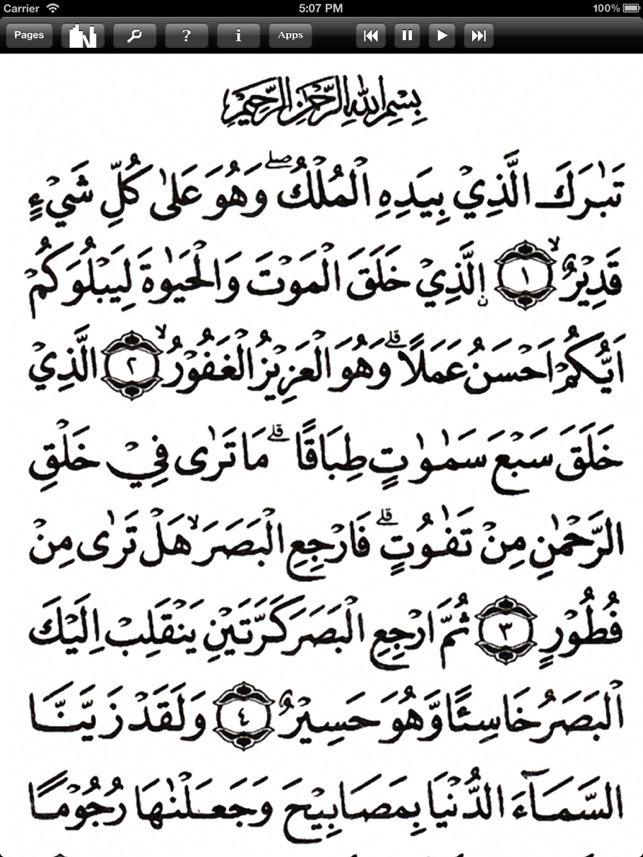 Carrier 5:07 PM 100%
Pages ? i Apps
بِسْمِ اللّٰهِ الرَّحْمٰنِ الرَّحِيْمِ
تَبٰرَكَ الَّذِيْ بِيَدِهِ الْمُلْكُ ۖ وَهُوَ عَلٰى كُلِّ شَيْءٍ
قَدِيْرٌ ۙ ١ اِۨلَّذِيْ خَلَقَ الْمَوْتَ وَالْحَيٰوةَ لِيَبْلُوَكُمْ
اَيُّكُمْ اَحْسَنُ عَمَلًا ۗ وَهُوَ الْعَزِيْزُ الْغَفُوْرُ ۙ ٢ الَّذِيْ
خَلَقَ سَبْعَ سَمٰوٰتٍ طِبَاقًا ۗ مَا تَرٰى فِيْ خَلْقِ
الرَّحْمٰنِ مِنْ تَفٰوُتٍ ۗ فَارْجِعِ الْبَصَرَ ۙ هَلْ تَرٰى مِنْ
فُطُوْرٍ ٣ ثُمَّ ارْجِعِ الْبَصَرَ كَرَّتَيْنِ يَنْقَلِبْ اِلَيْكَ
الْبَصَرُ خَاسِئًا وَّهُوَ حَسِيْرٌ ٤ وَلَقَدْ زَيَّنَّا
السَّمَاۤءَ الدُّنْيَا بِمَصَابِيْحَ وَجَعَلْنٰهَا رُجُوْمًا